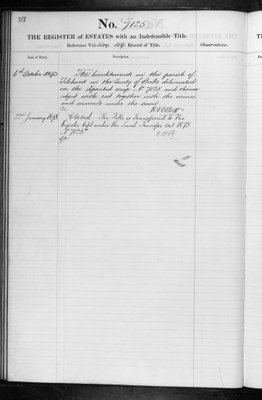 97
No. 7125
THE REGISTER of ESTATES with an Indefeasible Title.
Reference Vol. Record of Title.
Observations.
Date of Entry.
Description.
6th October 1873
The hereditaments in the parish of
Tilehurst in the County of Berks delineated
on the deposited map No 7125 and thereon
edged with red together with the mines
and minerals under the same
22nd January 1898
Closed. The Title is transferred to the
Register kept under the Land Transfer Act 1875
No 7125